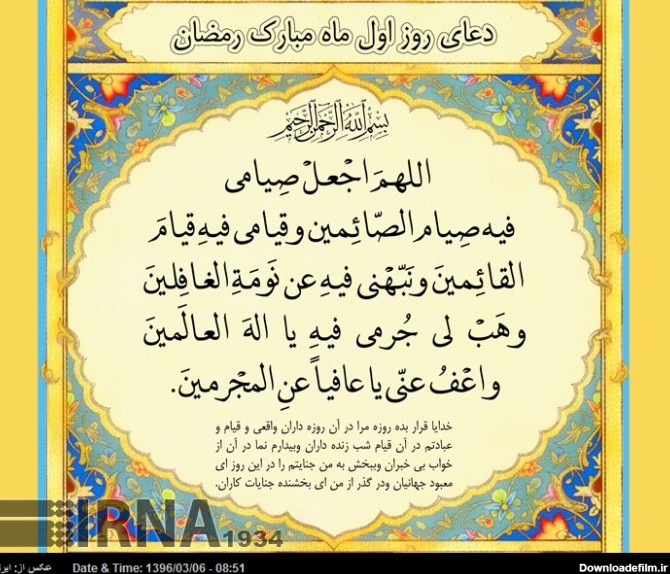 دعای روز اول ماه مبارک رمضان
بِسْمِ اللَّهِ الرَّحْمَنِ الرَّحِيمِ
اللهمَ اجْعلْ صِیامی
فیه صِیام الصّائِمین و قیامی فیهِ قیامَ
القائِمینَ ونَبّهْنی فیهِ عن نَومَةِ الغافِلینَ
وهَبْ لی جُرمی فیهِ یا الهَ العالَمینَ
واعْفُ عنّی یا عافیاً عنِ المجْرمینَ.
خدایا قرار بده روزه مرا در آن روزه داران واقعی و قیام و
عبادتم در آن قیام شب زنده داران وبیدارم نما در آن از
خواب بی خبران وببخش به من جنایتم را در این روز ای
معبود جهانیان ودر گذر از من ای بخشنده جنایات کاران.
IRNA 1934
عکس از: ایر Date & Time: 1396/03/06 - 08:51 Downloadefilm.ir